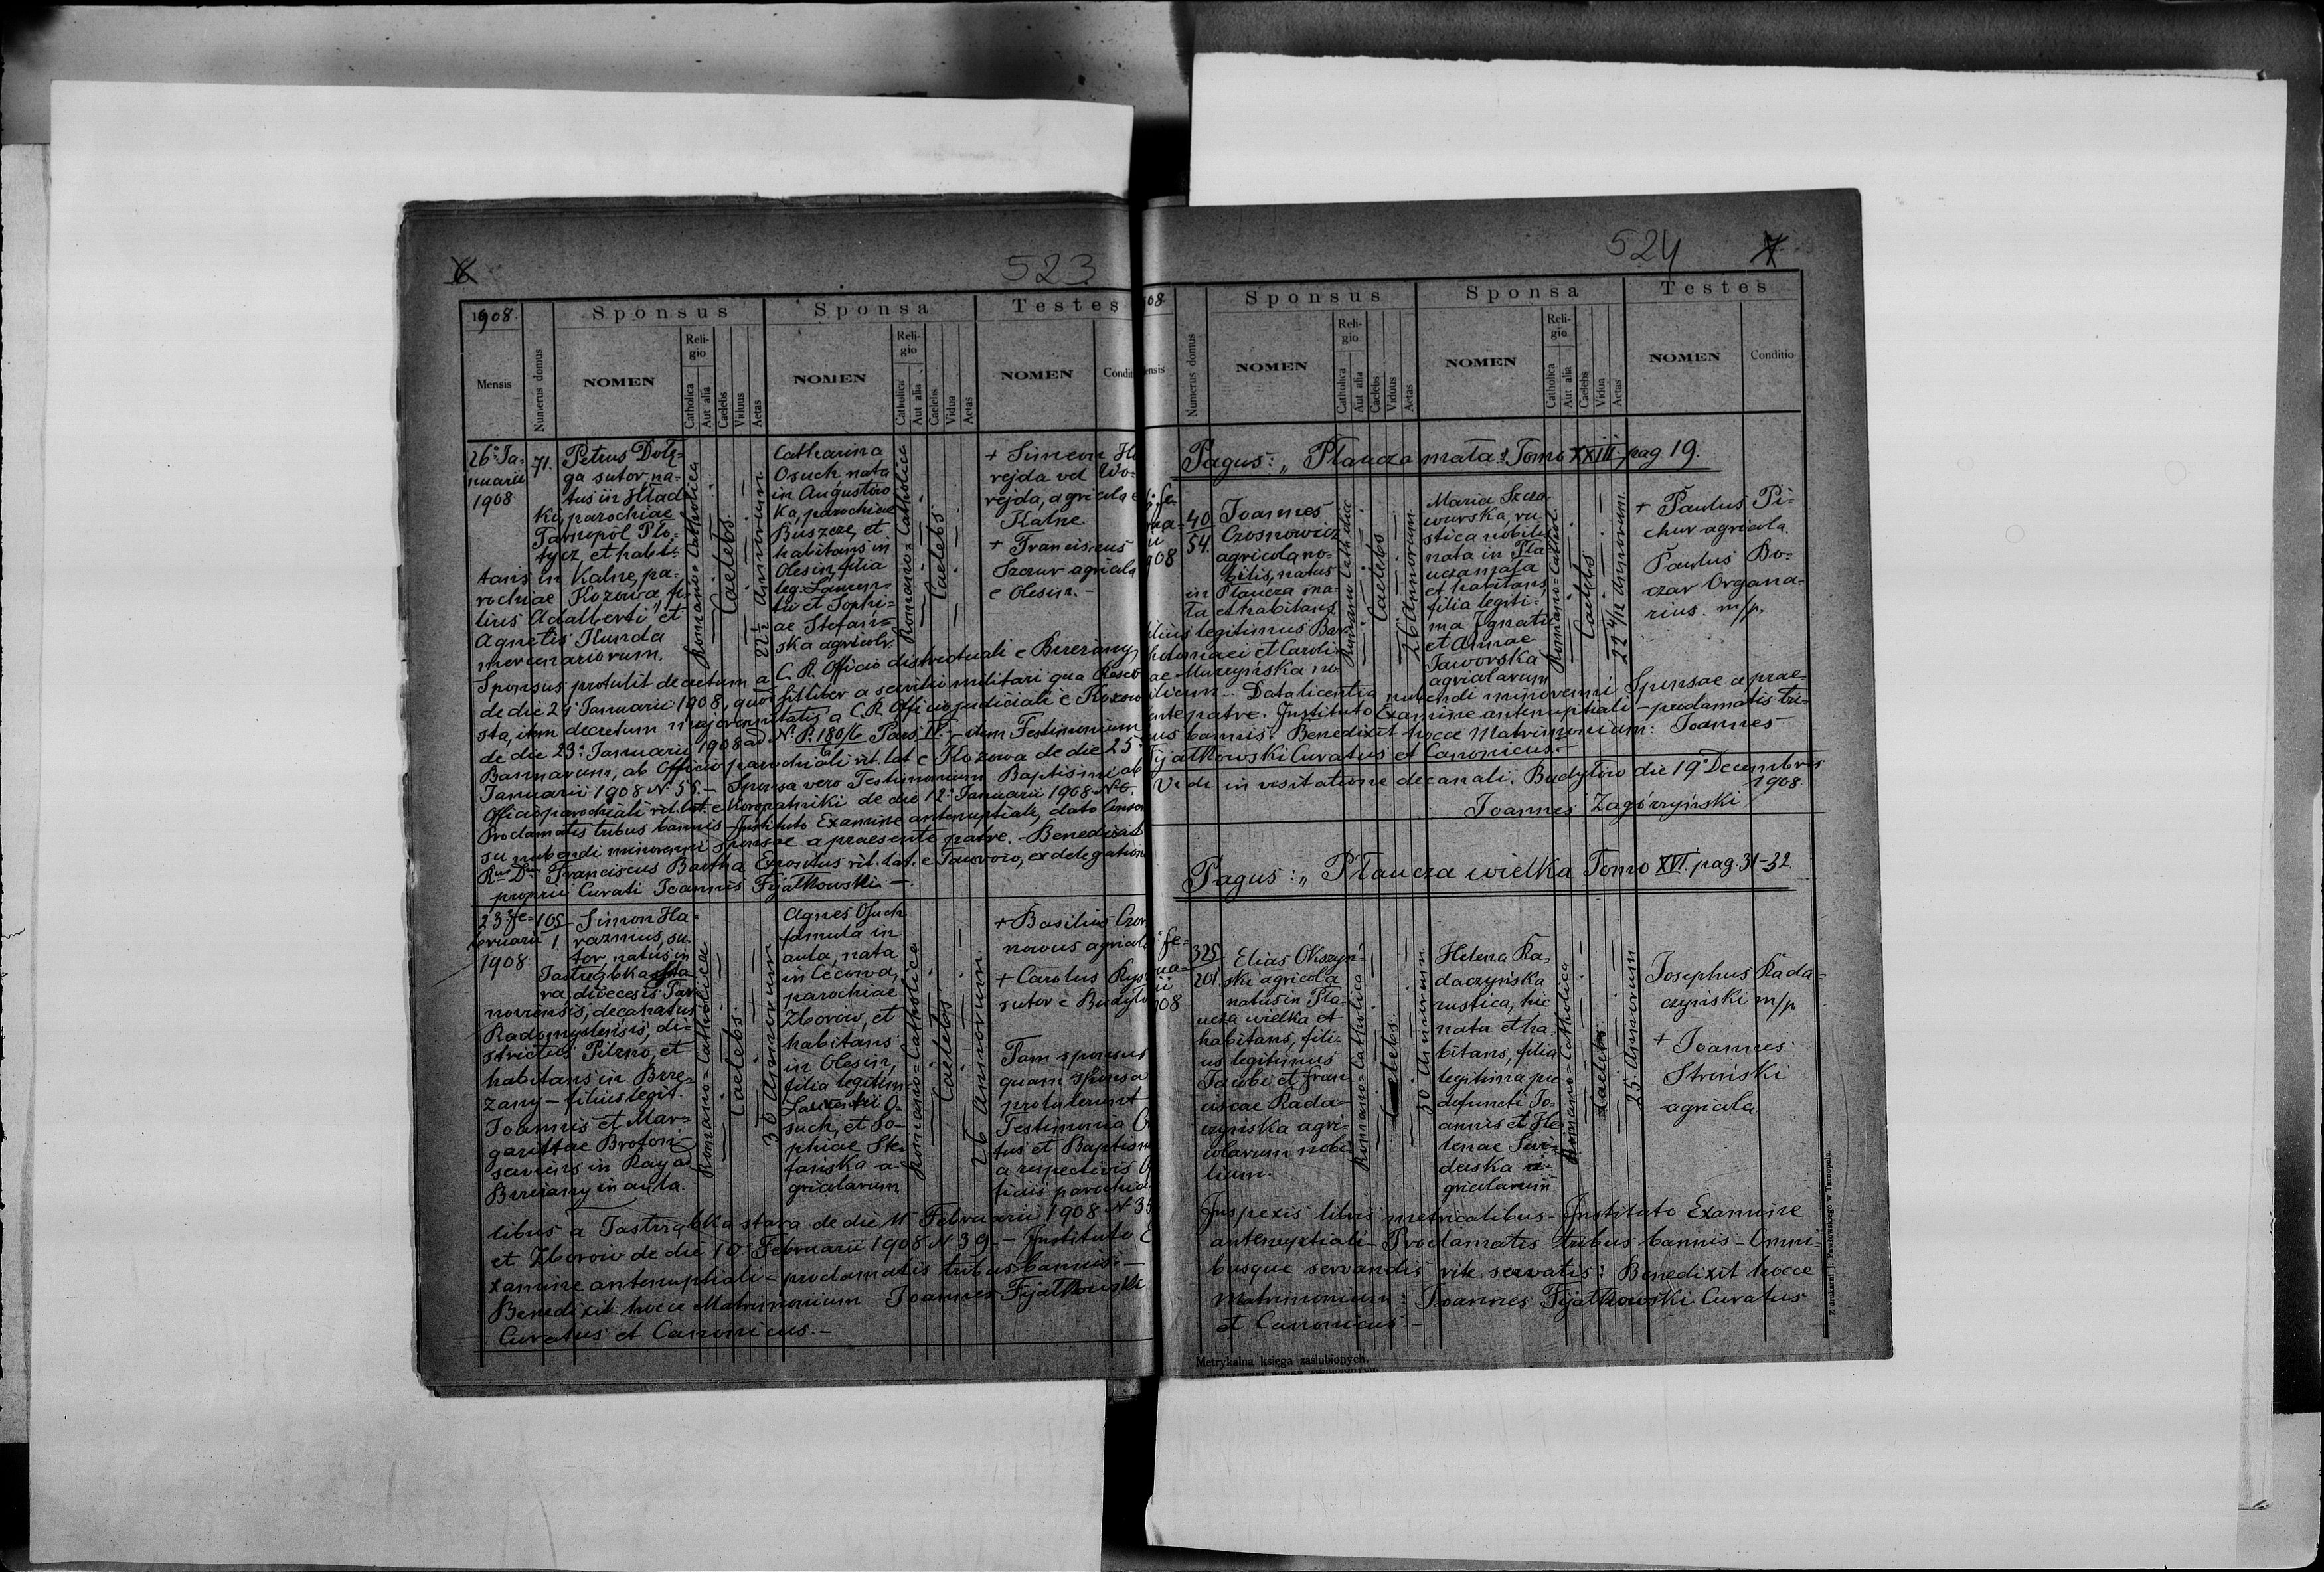 6
523
1908.
Sponsus
Sponsa
Testes
Mensis
Numerus domus
NOMEN
Religio
Catholica
Aut alia
Caelebs
Viduus
Aetas
NOMEN
Religio
Catholica
Aut alia
Caelebs
Vidua
Aetas
NOMEN
Condit
26º Ja-
nuarii
1908
71.
Petrus Dołę-
ga sutor, na-
tus in Hład-
ki, parochiae
Tarnopol Pło-
tycz et habi-
tans in Kalne, pa-
rochiae Kozowa, fi-
lius Adalberti et
Agnetis Kunda
mercenariorum.
Romano-Catholica
Caelebs
22½ Annorum
Catharina
Osuch nata
in Augustów-
ka, parochiae
Buszcze, et
habitans in
Olesin, filia
leg. Lauren-
tii et Sophi-
ae Stefań-
ska agricolr.
Romano-Catholica
Caelebs
+ Simeon
rejda vel Wo-
rejda, agricola e
Kalne.
+ Franciscus
Szczur agricola
e Olesin.-
Sponsus protulit decretum a C. R. Officio districtuali e Brzeżany
de die 24º Januarii 1908, quod sit liber a servitii militari qua
sta, item decretum majorennitatis a C. R. Officio judiciali e Kozow
de die 23º Januarii 1908 ad Nº P. 180/6 Pars IV.- item Testimonium
Bannorum, ab Officio parochiali rit. lat. e Kozowa de die 25
Januarii 1908 Nº 55.- Sponsa vero Testimonium Baptismi ab
Officio parochiali rit. lat. e Koropatniki de die 12º Januarii 1908 Nº 6.
Proclamatis tribus bannis - Instituto Examine antenuptiali, dato Consen
su nubendi minorenni Sponsae a praesente patre. - Benedixit
Rms Dms Franciscus Bartha Expositus rit. lat. e Taurow, ex delegation
proprii Curati Joannis Fijałkowski.-
23º Fe-
bruarii
1908.
105
1.
Simon Ha-
razmus, su-
tor, natus in
Jastrząbka Sta-
ra, dioecesis Tar-
noviensis, decanatus
Radomyslensis, di-
strictus Pilzno, et
habitans in Brze-
żany - filius legit.
Joannis et Mar-
garittae Brofoń-
serviens in Raj ad
Brzeżany in aula.
Romano-Catholica
Caelebs
30 Annorum
Agnes Osuch
famula in
aula, nata
in Cecowa,
parochiae
Zborow, et
habitans
in Olesin,
filia legitim-
Laurentii O-
such, et So-
phiae Ste-
fańska a-
gricolarum
Romano-Catholica
Caelebs
26 Annorum
+ Basilius Czor
nowus agricol
+ Carolus Rys
sutor e Budyło
Tam sponsus
quam sponsa
protulerunt
Testimonia
tus et Baptism
a respectivis
ficiis parochia
libus a Jastrząbka stara de die 11 Februarii 1908 Nº 35
et Zborow de die 10º Februarii 1908 Nº 39 - Instituto E
xamine antenuptiali - proclamatis tribus bannis.-
Benedixit hocce Matrimonium Joannes Fijałkowski
Curatus et Canonicus.-
524
7
908
Sponsus
Sponsa
Testes
ensis
Numerus domus
NOMEN
Religio
Catholica
Aut alia
Caelebs
Viduus
Aetas
NOMEN
Religio
Catholica
Aut alia
Caelebs
Vidua
Aetas
NOMEN
Conditio
Pagus: „Płaucza mała" Tomo XXIII. pag. 19.
908
40
54.
Joannes
Czosnowicz
agricola no-
bilis, natus
in Płaucza ma-
ła et habitans
filius legitimus Bar-
tholomaei et Caroli-
nae Murzyńska no-
Romano-Catholica
Caelebs
26 Annorum
Maria Szcza-
wurska, ru-
stica nobilis
nata in Pła-
ucza mała
et habitans,
filia legiti-
ma Ignatii
et Annae
Jaworska
agricolarum
Romano-Cathol.
Caelebs
22 4/12 Annorum
+ Paulus Pi-
chur agricola.
Paulus Bo-
czar Organa-
rius. m/p.
bilium.- Data licentia nubendi minorenni Sponsae a prae-
sente patre. Instituto Examine antenuptiali - proclamatis tri-
bus bannis. Benedixit hocce Matrimonium: Joannes
Fijałkowski Curatus et Canonicus.-
Vidi in visitatione decanali. Budyłów die 19º Decembris
1908.
Joannes Zagórzyński
Pagus: „Płaucza wielka Tomo XVI. pag. 31-32
908
325
201.
Elias Okszyń-
ski agricola
natus in Pła-
ucza wielka et
habitans, fili-
us legitimus
Jacobi et Fran-
ciscae Rada-
czyńska agri-
colarum nobi-
lium.
Romano-Catholica
Caelebs
30 Annorum
Helena Ra-
daczyńska
rustica, hic
nata et ha-
bitans, filia
legitima prae-
defuncti Jo-
annis et He-
lenae Świ-
derska a-
gricolarum
Romano-Catholica
Caelebs
25. Annorum
Josephus Rada-
czyński m/p
+ Joannes
Stroński
agricola.
Inspexis libris metricalibus - Instituto Examine
antenuptiali - Proclamatis tribus bannis - Omni-
busque servandis rite servatis: Benedixit hocce
Matrimonium: Joannes Fijałkowski Curatus
et Canonicus.-
Metrykalna księga zaślubionych.
Z drukarni J. Pawłowskiego w Tarnopolu.